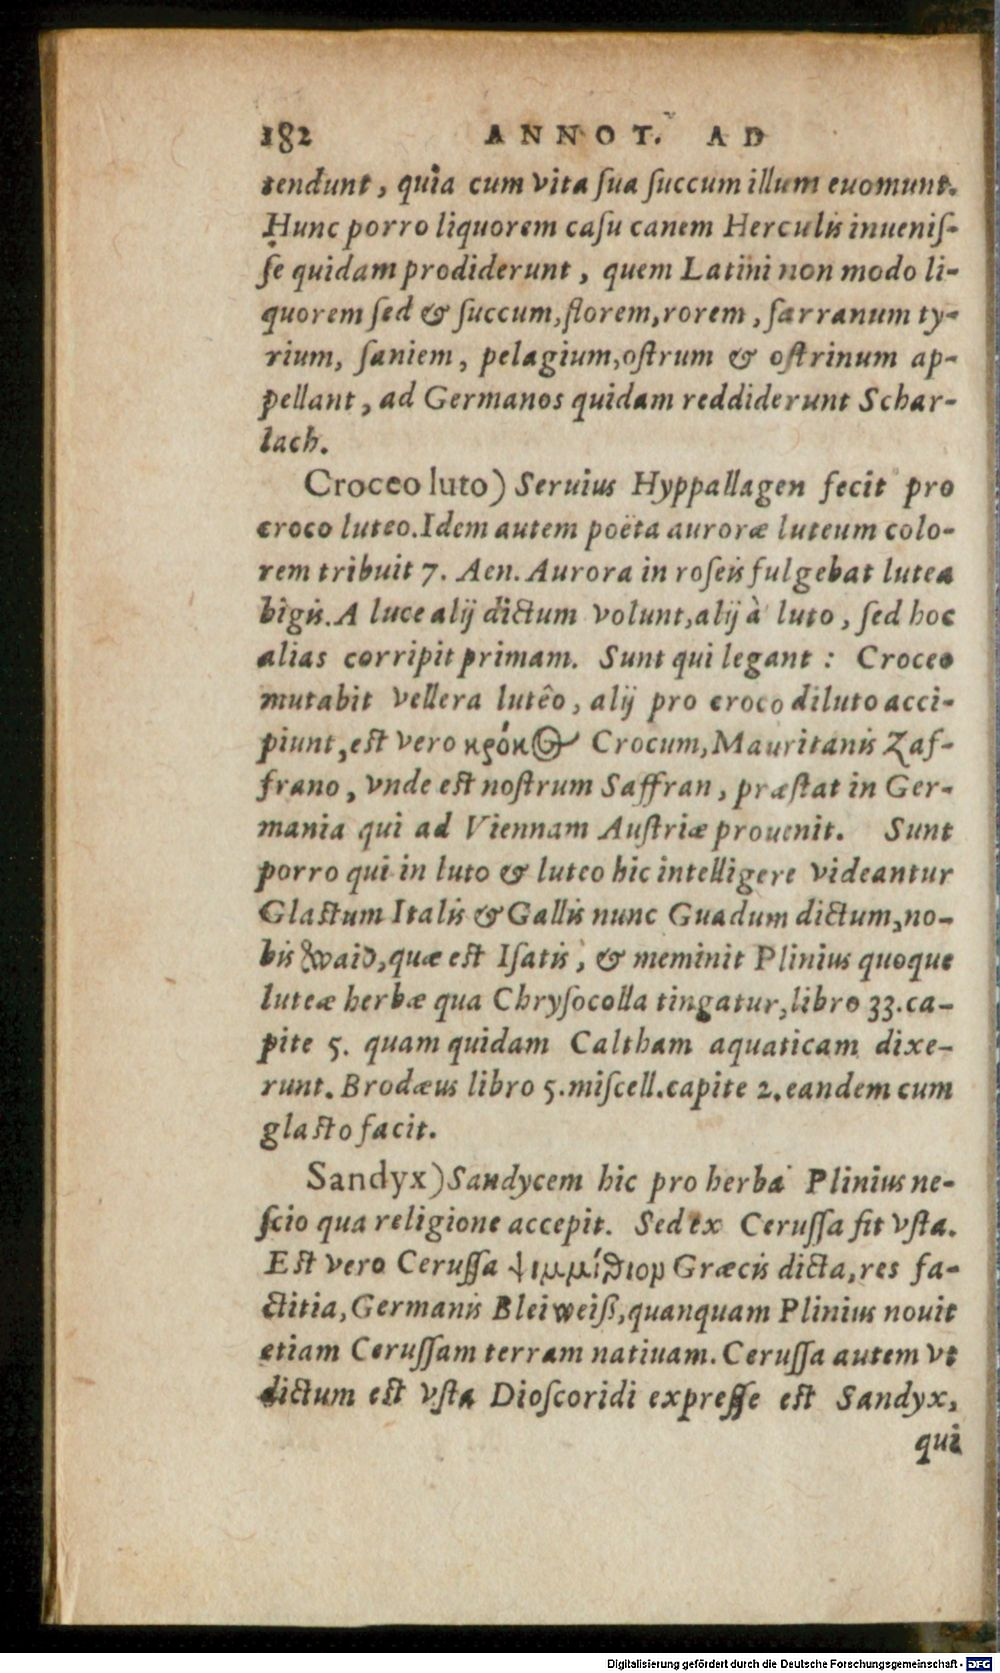 182 ANNOT. AD
tendunt, quia cum vita ſua ſuccum illum euomunt.
Hunc porro liquorem caſu canem Herculis inueniſ-
ſe quidam prodiderunt, quem Latini non modo li-
quorem ſed & ſuccum, florem, rorem, ſarranum ty-
rium, ſaniem, pelagium, oſtrum & oſtrinum ap-
pellant, ad Germanos quidam reddiderunt Schar-
lach.
Croceo luto) Seruius Hyppallagen fecit pro
croco luteo. Idem autem poëta auroræ luteum colo-
rem tribuit 7. Aen. Aurora in roſeis fulgebat lutea
bigis. A luce alij dictum volunt, alij à luto, ſed hoc
alias corripit primam. Sunt qui legant : Croceo
mutabit vellera lutêo, alij pro croco diluto acci-
piunt, eſt vero κρόκος Crocum, Mauritanis Zaf-
frano, vnde eſt noſtrum Saffran, præſtat in Ger-
mania qui ad Viennam Auſtriæ prouenit. Sunt
porro qui in luto & luteo hic intelligere videantur
Glaſtum Italis & Gallis nunc Guadum dictum, no-
bis Waid, quæ eſt Iſatis, & meminit Plinius quoque
luteæ herbæ qua Chryſocolla tingatur, libro 33. ca-
pite 5. quam quidam Caltham aquaticam dixe-
runt. Brodæus libro 5. miſcell. capite 2. eandem cum
glaſto facit.
Sandyx) Sandycem hic pro herba Plinius ne-
ſcio qua religione accepit. Sed ex Ceruſſa fit vſta.
Eſt vero Ceruſſa ψιμμίθιον Græcis dicta, res fa-
ctitia, Germanis Bleiweiß, quanquam Plinius nouit
etiam Ceruſſam terram natiuam. Ceruſſa autem vt
dictum eſt vſta Dioſcoridi expreſſe eſt Sandyx,
qui
Digitalisierung gefördert durch die Deutsche Forschungsgemeinschaft - DFG